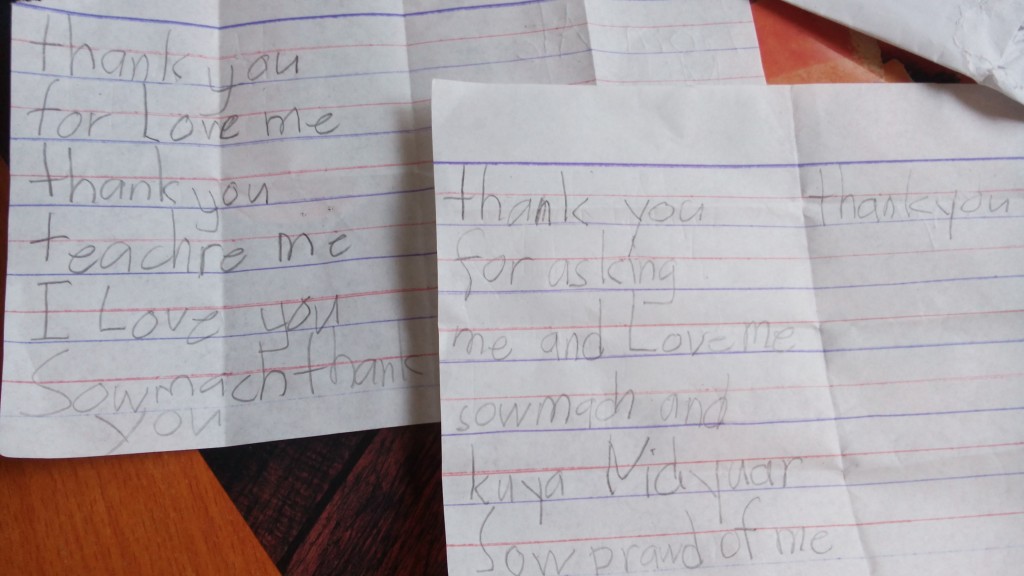 thank you
for Love me
thank you
teachre me
I Love you
Sowmach thank
you
thank you thankyou
for asking
me and Love me
sowmach and
kuya
Sow prawd of me